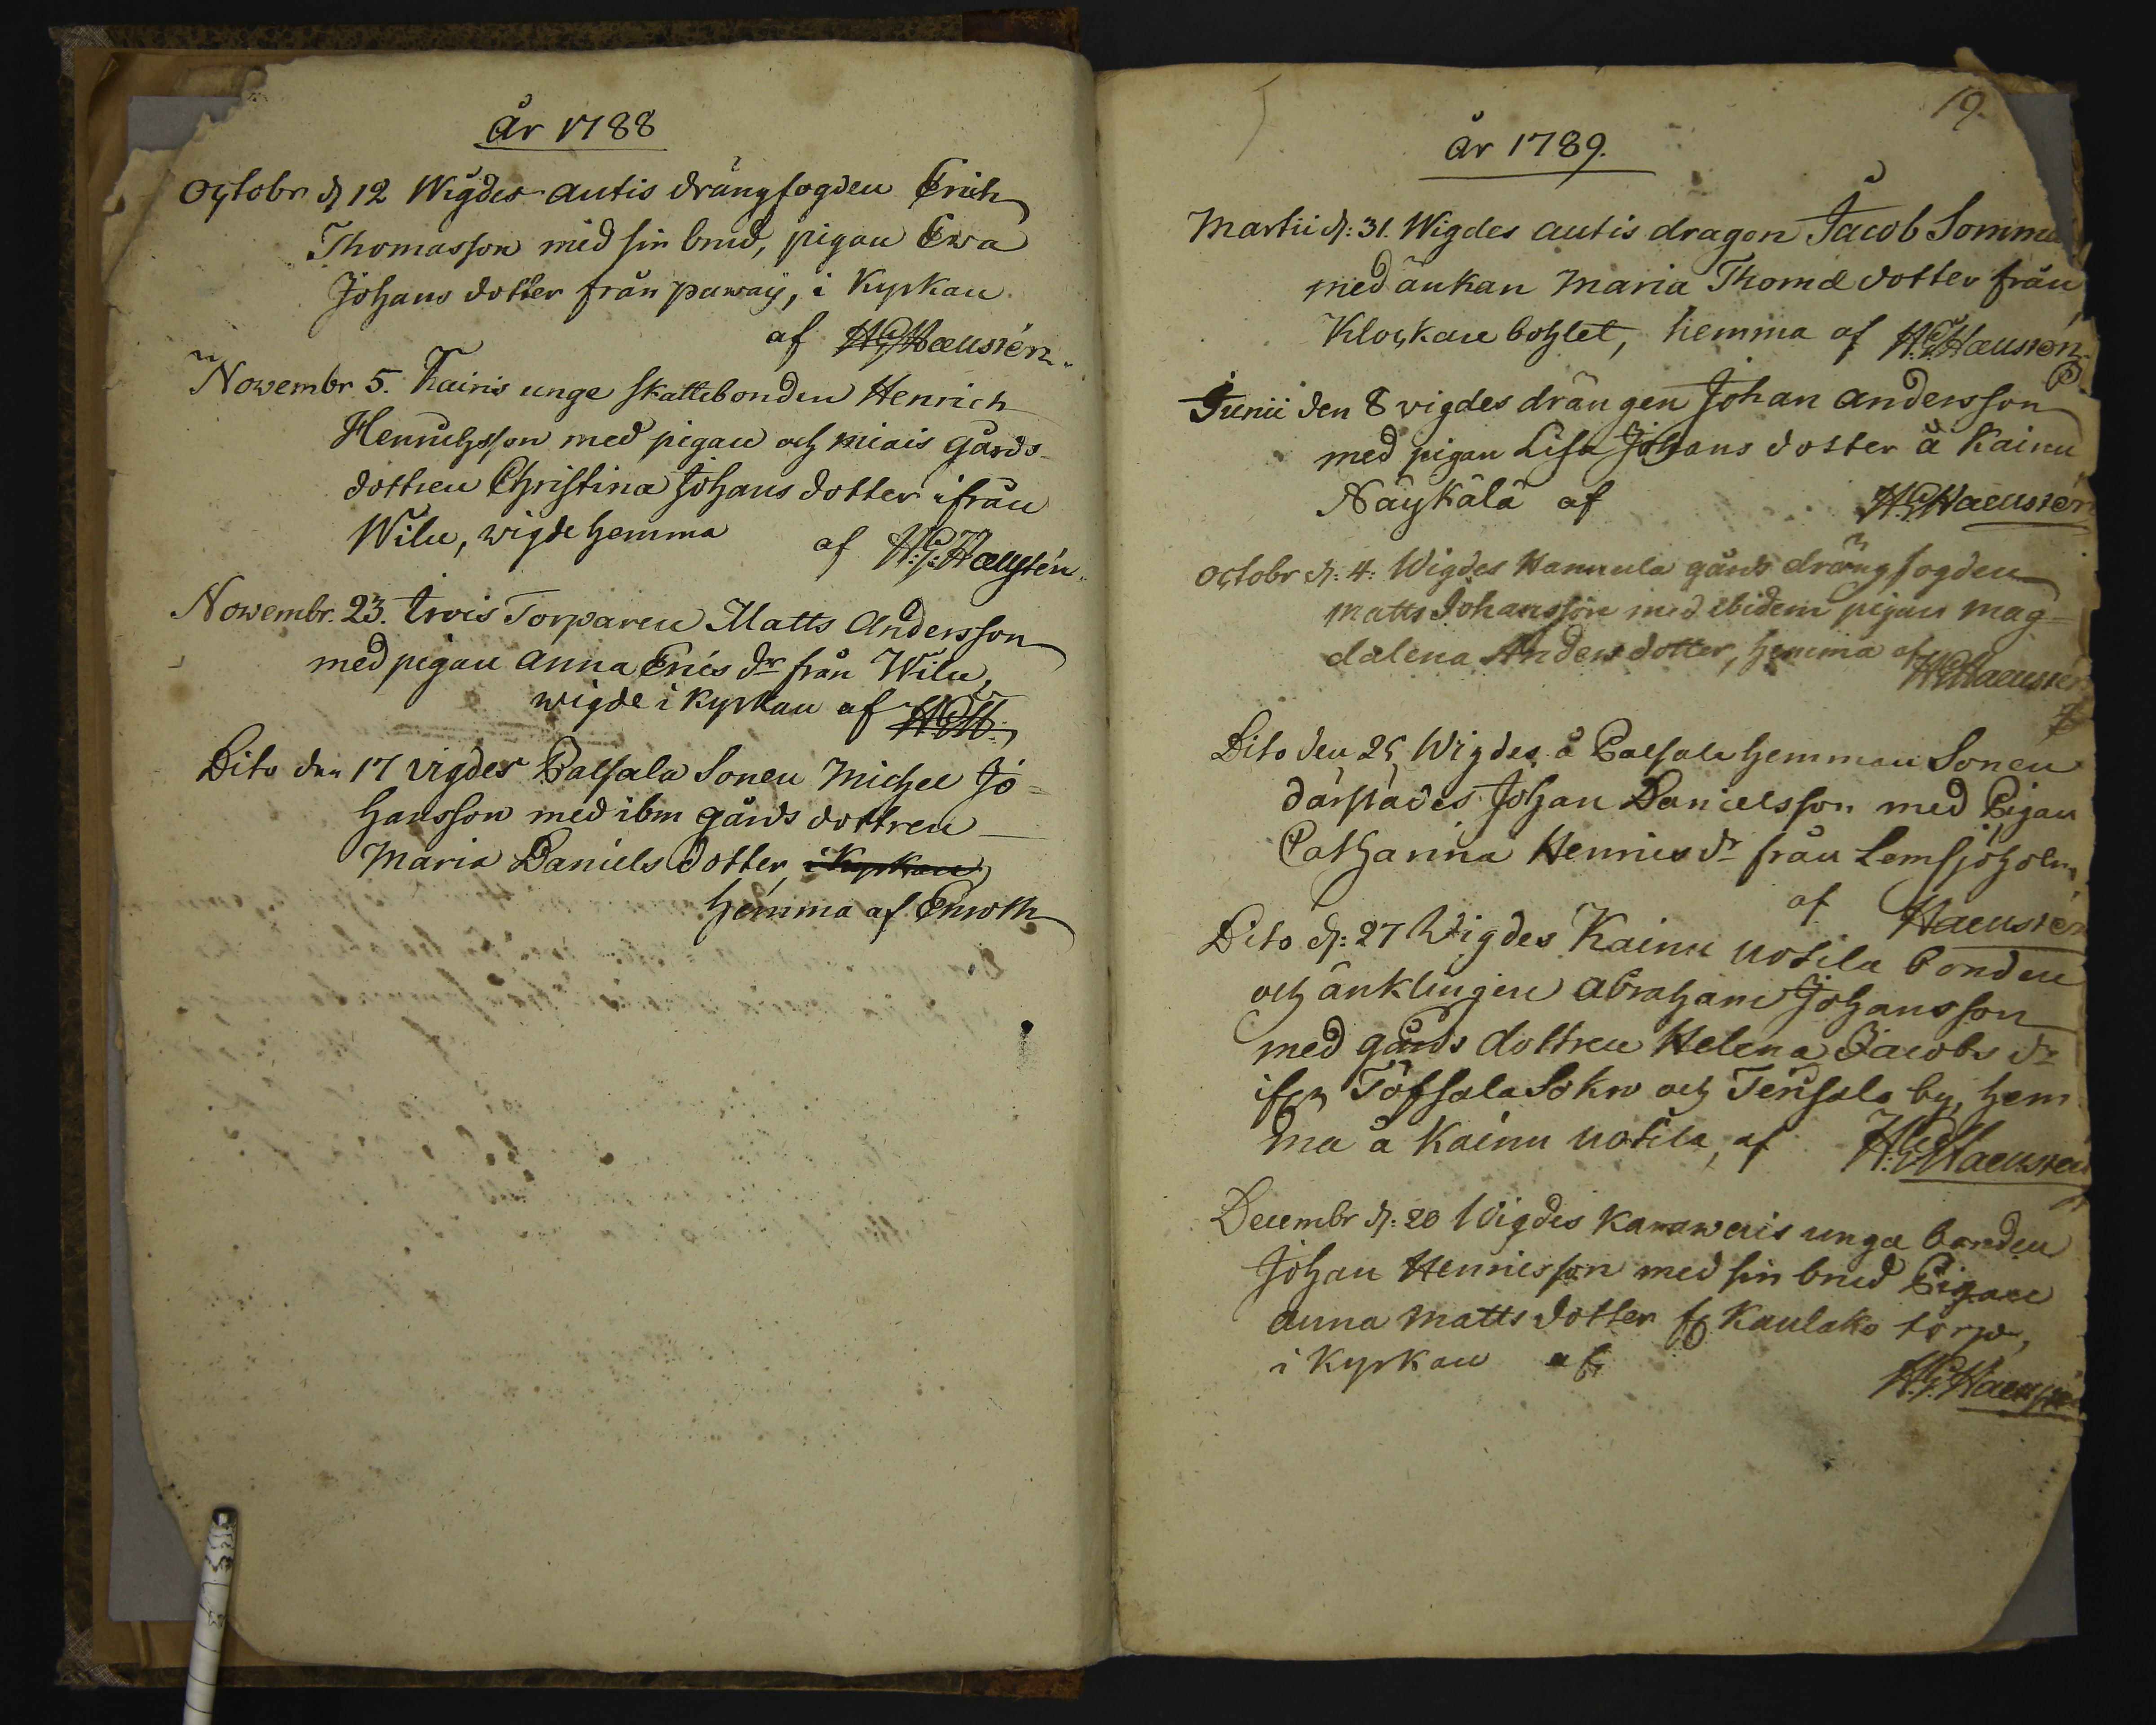 År 1788
Octobr d. 12 Wigdes autis drängfogden Erich
Thomasson med sin brud, pigan Ewa
Johans dotter från paway, i Kyrkan
af H:G:Haeusién
Nowembr 5. Kairis unge skattebonden Henrich
Henrichsson med pigan och miais gårds
dottren Christina Johans dotter ifrån
Wilu, wigde hemma af H:G:Haeusién
Nowembr. 23. trois Torparen Matts Andersson
med pigan Anna Erics dr från Wilu,
wigde i Kyrkan af H:G:H:
Dito den 17 vigdes Palsala Sonen Michel Jo=
hansson med ibm gårds dottren
Maria Daniels dotter, i Kyrkan
hemma af Enroth
19.
år 1789.
Martii d: 31. Wigdes autis dragon Jacob
med änkan Maria Thomæ dotter från
Klockare bohlet, hemma af H:G:Haeusién
Junii den 8 vigdes drängen Johan andersson
med pigan Lisa Johans dotter å Kainu
Näykälä af H:G:Haeusién
Octobr d: 4: Wigdes Hannula gårds drängfogden
Matts Johansson med ibidem pigan Mag=
dalena Anders dotter, hemma af H:G:Haeusién
Dito den 25 Wigdes å Palsala hemman Sonen
därstädes Johan Danielsson med Pigan
Catharina Henrics dr från Lemsjöholm,
af Haeusién
Dito d: 27 Wigdes Kainu Uotila bonden
och änklingen Abraham Johansson
med gårds dottren Helena Jacobs dr
ifrn Töfsala Sokn och Tersala by, hem
ma å Kainu Uotila, af H:G:Haeusién
Decembr d: 20 Wigdes Karawais unga bonden
Johan Henricsson med sin brud Pigan
Anna Matts dotter fr Kaulako torp,
i Kyrkan af H:G:Haeusién